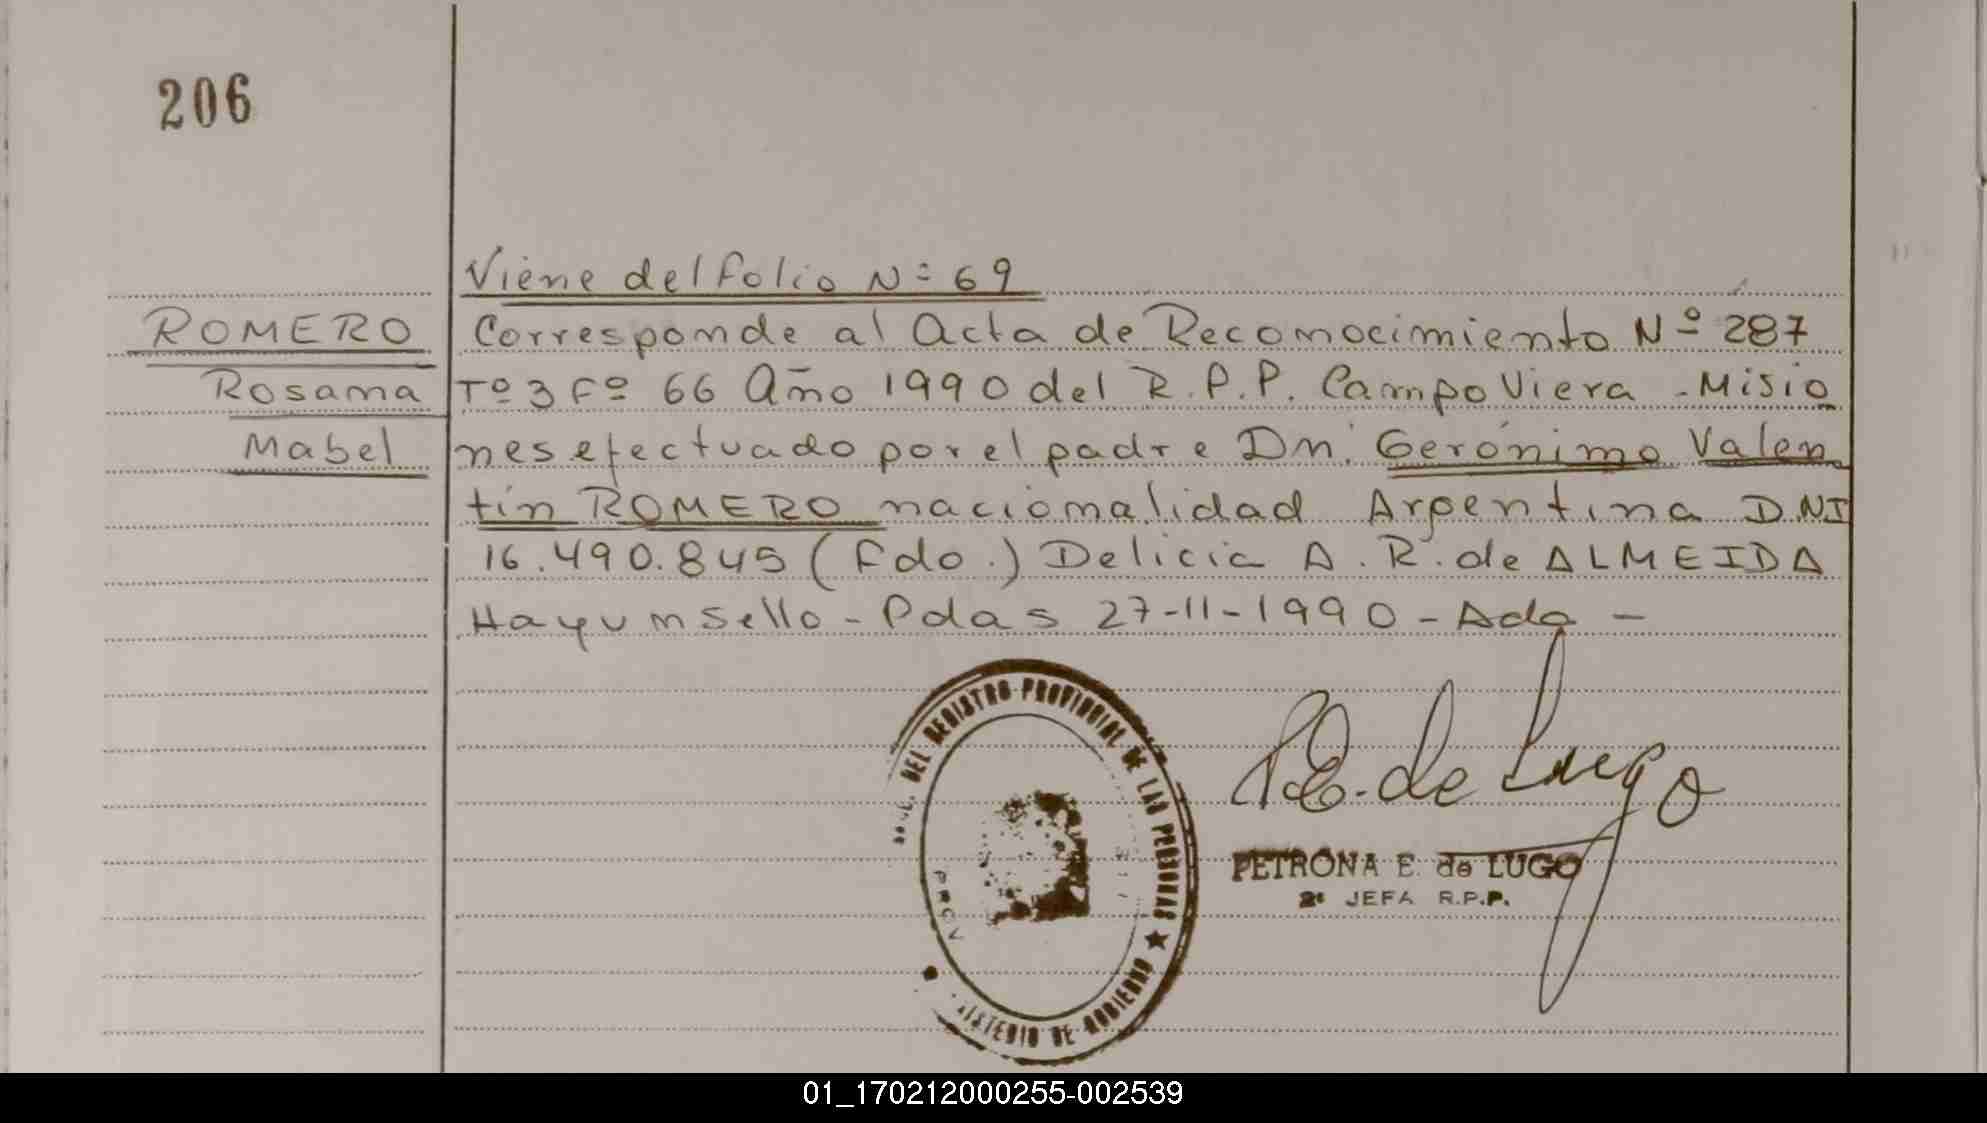 206
Viene del folio Nº 69
ROMERO
Rosana
Mabel
Corresponde al Acta de Reconocimiento Nº 287
Tº 3 Fº 66 Año 1990 del R.P.P. Campo Viera - Misio
nes efectuado por el padre Dn. Gerónimo Valen
tín ROMERO nacionalidad Argentina DNI
16.490.845 (Fdo.) Delicia A. R. de ALMEIDA
Hay un sello - Pdas 27-11-1990 - Ada -
DEL REGISTRO PROVINCIAL DE LAS PERSONAS ★
DE GOBIERNO
P.E. de Lugo
PETRONA E. de LUGO
2º JEFA R.P.P.
01_170212000255-002539